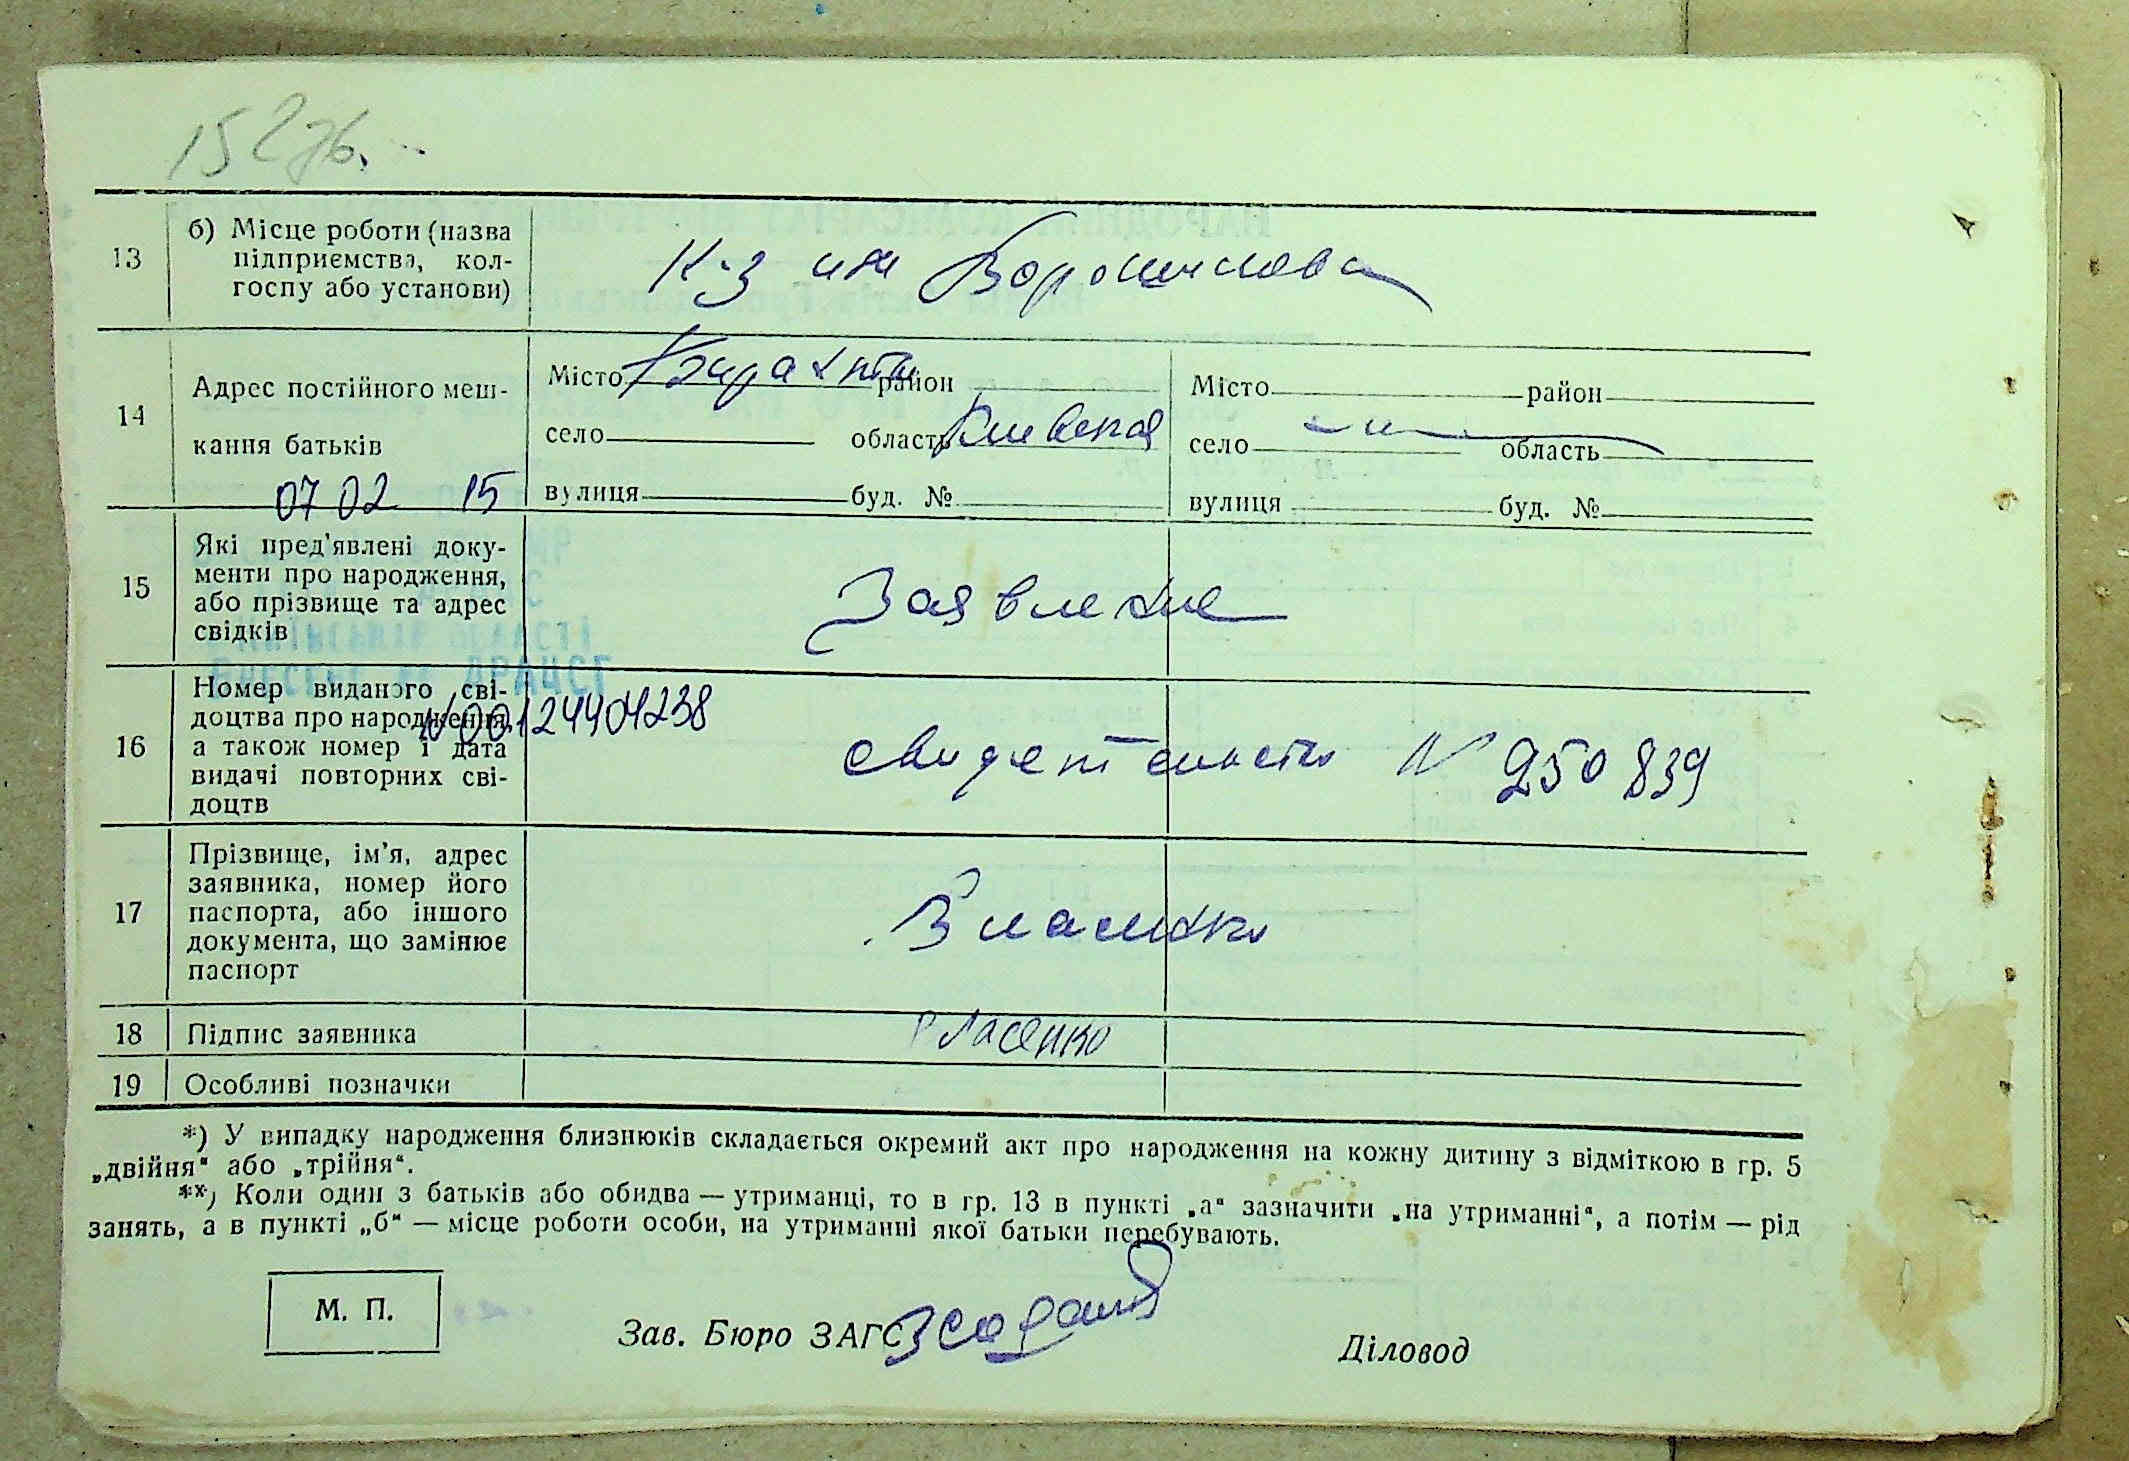 13 б) Місце роботи (назва
підприємства, кол-
госпу або установи)
К-з им Ворошилова
14 Адрес постійного меш-
кання батьків
Місто район
село область Киевская
вулиця буд. №
Місто район
село область
вулиця буд. №
07 02 15
15 Які пред'явлені доку-
менти про народження,
або прізвище та адрес
свідків
Заявление
ДРАЦСГ
16 Номер виданого сві-
доцтва про народження,
а також номер і дата
видачі повторних сві-
доцтв
N 00124404238
свидетельство N 950839
17 Прізвище, ім'я, адрес
заявника, номер його
паспорта, або іншого
документа, що замінює
паспорт
Власенко
18 Підпис заявника
Власенко
19 Особливі позначки
*) У випадку народження близнюків складається окремий акт про народження на кожну дитину з відміткою в гр. 5
„двійня“ або „трійня“.
**) Коли один з батьків або обидва — утриманці, то в гр. 13 в пункті „а“ зазначити „на утриманні“, а потім — рід
занять, а в пункті „б“ — місце роботи особи, на утриманні якої батьки перебувають.
М. П.
Зав. Бюро ЗАГС
Діловод